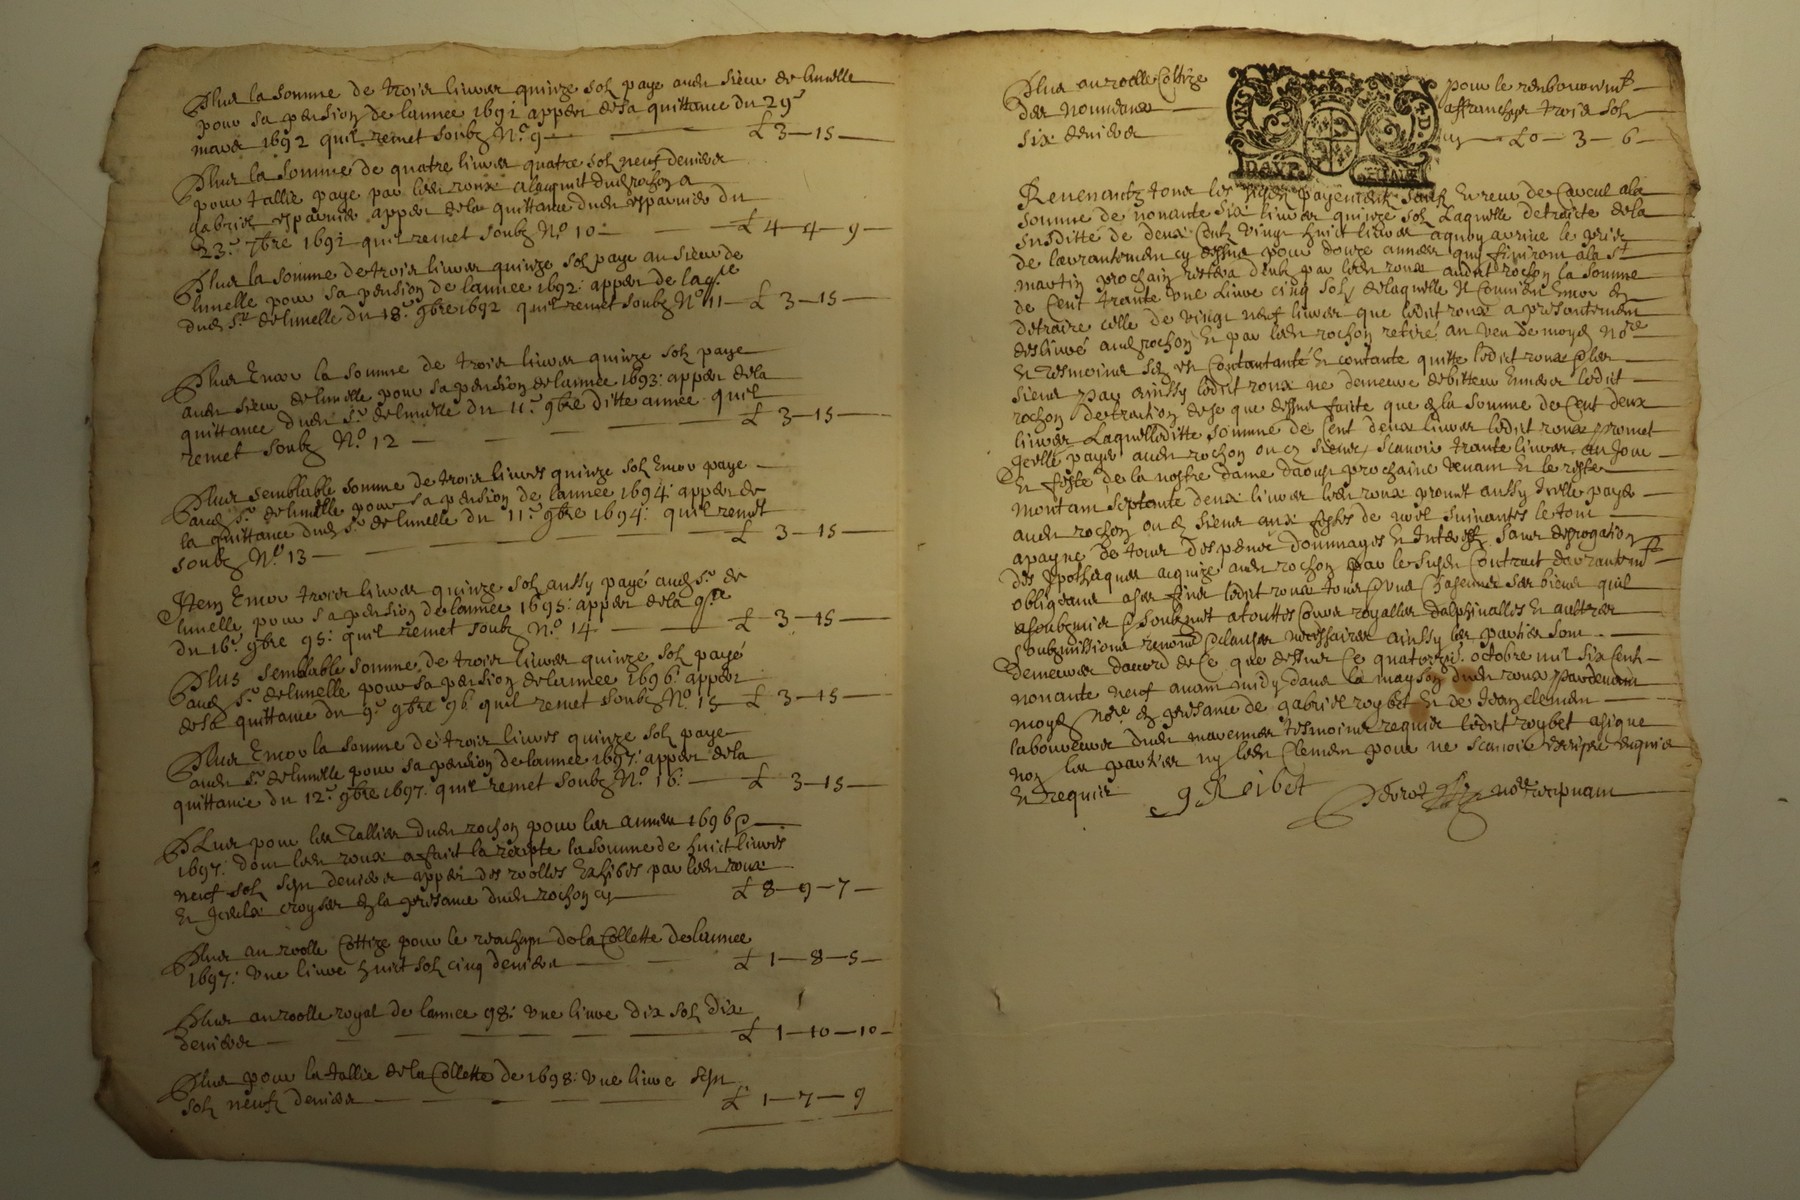 Plus la somme de trois livres quinze solz payé aud sieur de lunelle
pour sa pension de lannee 1691 apper de sa quittance du 29e
mars 1692 quil remet soubz No 9 £ 3—15—
Plus la somme de quatre livres quatre solz neuf deniers
pour tallie paye par led roux a lacquit dud rochon a
gabriel esparvier apper de la quittance dud esparvier du
23e 7bre 1692 quil remet soubz No 10 £ 4—4—9—
Plus la somme de trois livres quinze solz paye au sieur de
lunelle pour sa pension de lannee 1692: apper de la qce
dud sr de lunelle du 18e 9bre 1692 quil remet soubz No 11 £ 3—15—
Plus Encor la somme de trois livres quinze solz paye
aud sieur de lunelle pour sa pension de lannee 1693: apper de la
quittance dud sr de lunelle du 11e 9bre ditte annee quil
remet soubz No 12 £ 3—15—
Plus semblable somme de trois livres quinze solz Encor paye
aud sr de lunelle pour sa pension de lannee 1694: apper de
la quittance dud sr de lunelle du 11e 9bre 1694: quil remet
soubz No 13 £ 3—15—
Item Encor trois livres quinze solz aussy payé aud sr de
lunelle pour sa pension de lannee 1695: apper de la qce
du 16e 9bre 95: quil remet soubz No 14 £ 3—15—
Plus semblable somme de trois livres quinze solz payé
aud sr de lunelle pour sa pension de lannee 1696: apper
de sa quittance du 9e 9bre 96 quil remet soubz No 15 £ 3—15—
Plus Encor la somme de trois livres quinze solz paye
aud sr de lunelle pour sa pension de lannee 1697: apper de la
quittance du 12e 9bre 1697: quil remet soubz No 16: £ 3—15—
Plus pour les Tallies dud rochon pour les annees 1696 &
1697: dont led roux a fait la recepte la somme de huict livres
neuf solz sept deniers apper des roolles Exhibes par led roux
Et Iceux croyses en la presance dud rochon cy £ 8—9—7—
Plus au roolle Cottize pour le de la Collette de lannee
1697: une livre huict solz cinq deniers £ 1—8—5—
Plus au roolle royal de lannee 98: une livre dix solz dix
deniers £ 1—10—10—
Plus pour la tallie de la Collette de 1698: une livre sept
solz neufz deniers £ 1—7—9
Plus au roolle Cottize pour le renboursemt
des nouveaux affranchys trois solz
six deniers cy £0—3—6—
DAUP
Revenantz tous les susd payements Ensemble de Caveul a la
somme de nonante six livres quinze solz Laquelle detraicte de la
susditte de deux Centz vingt huict livres a quoy arrive le prix
de larrantement cy dessus pour douze annees quy finiront a la St
martin prochain restera deub par led roux audit rochon la somme
de Cent trante une livre cinq solz de laquelle Il Convient Encor en
detraire celle de vingt neuf livres que ledit roux a presantement
deslivré aud rochon Et par led rochon retiré au veu de moyd nore
Et tesmoins sen est Contantanté Et contante quitte ledict roux & les
siens par ainssy ledit roux ne demeure debitteur Envers ledit
rochon detraction de ce que dessus faite que en la somme de Cent deux
livres Laquelle ditte somme de Cent deux livres ledit roux promet
Icelle payer aud rochon ou es siens, scavoir trante livres au Jour
Et feste de la nostre dame daoust prochaine venant Et le reste
montant septante deux livres led roux promet aussy Icelle payer
aud rochon ou es siens aux festes de noel suivantes le tout
a payne de tous despens dommages Et Interestz sans derogation
des Ipotheques acquizes aud rochon par le susd Contract darrantemt
obligeant a ces fins ledit roux tous & uns chascuns ses biens quil
a soubzmis & soubzmet a touttes Cours royalles dalphinalles Et aultres
soubzmissions renond & clauses necessaires ainssy les parties sont
demeurees daccord de Ce que dessus Ce quatorzie octobre mil six Centz
nonante neuf avant midy dans la mayson dud roux pardevant
moyd nore en presance de gabriel roybet Et de Jean clement
laboureurs dud mayenes tesmoins requis ledit roybet a signé
non les parties ny led Clement pour ne scavoir escripre Enquis
Et requis
g Roibet
nore recepvant